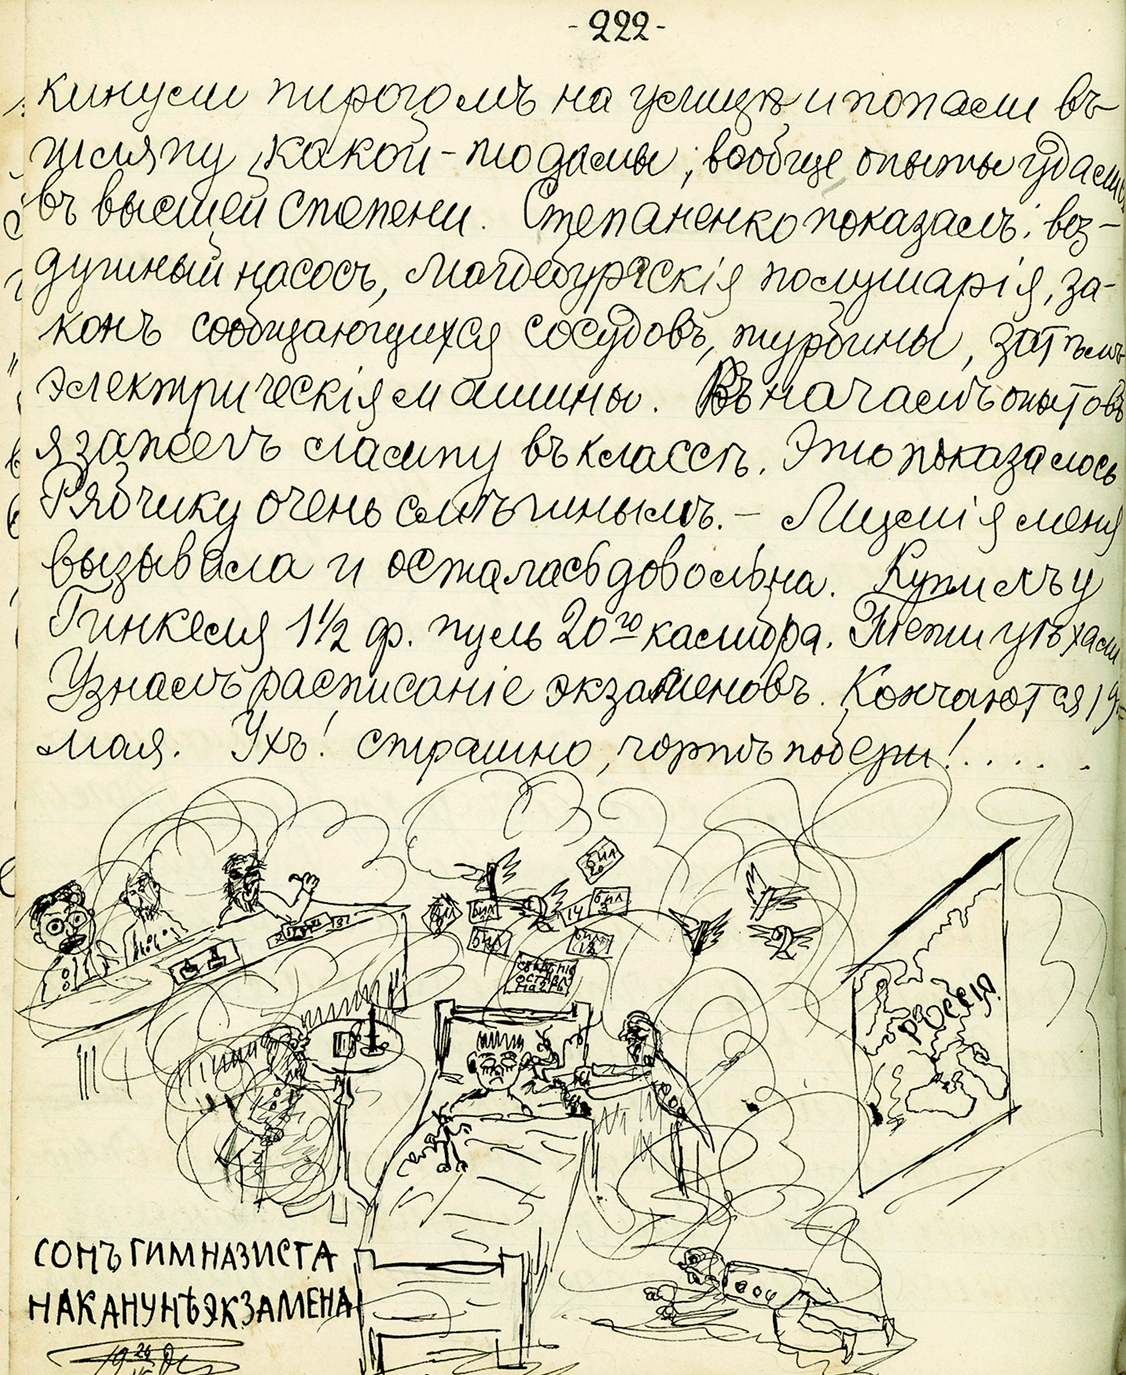 - 222 -
кинули пирогомъ на улицу и попали въ
шляпу какой-то дамы; вообще опыты удались
въ высшей степени. Степаненко показалъ: воз-
душный насосъ, Магдебургскія полушарія, за-
конъ сообщающихся сосудовъ, турбины, затѣмъ
электрическія машины. Въ началѣ опытовъ
я зажегъ лампу въ классѣ. Это показалось
Рябчику очень смѣшнымъ. – Лицилія меня
вызывала и осталась довольна. Купилъ у
Гинкеля 1½ ф. пуль 20го калибра. Тети уѣхали
Узналъ расписаніе экзаменовъ. Кончаются 19-
мая. Ухъ! страшно, чортъ побери!.....
бил
бил
14 бил
бил
бил
россія
СОНЪ ГИМНАЗИСТА
НАКАНУНѢ ЭКЗАМЕНА